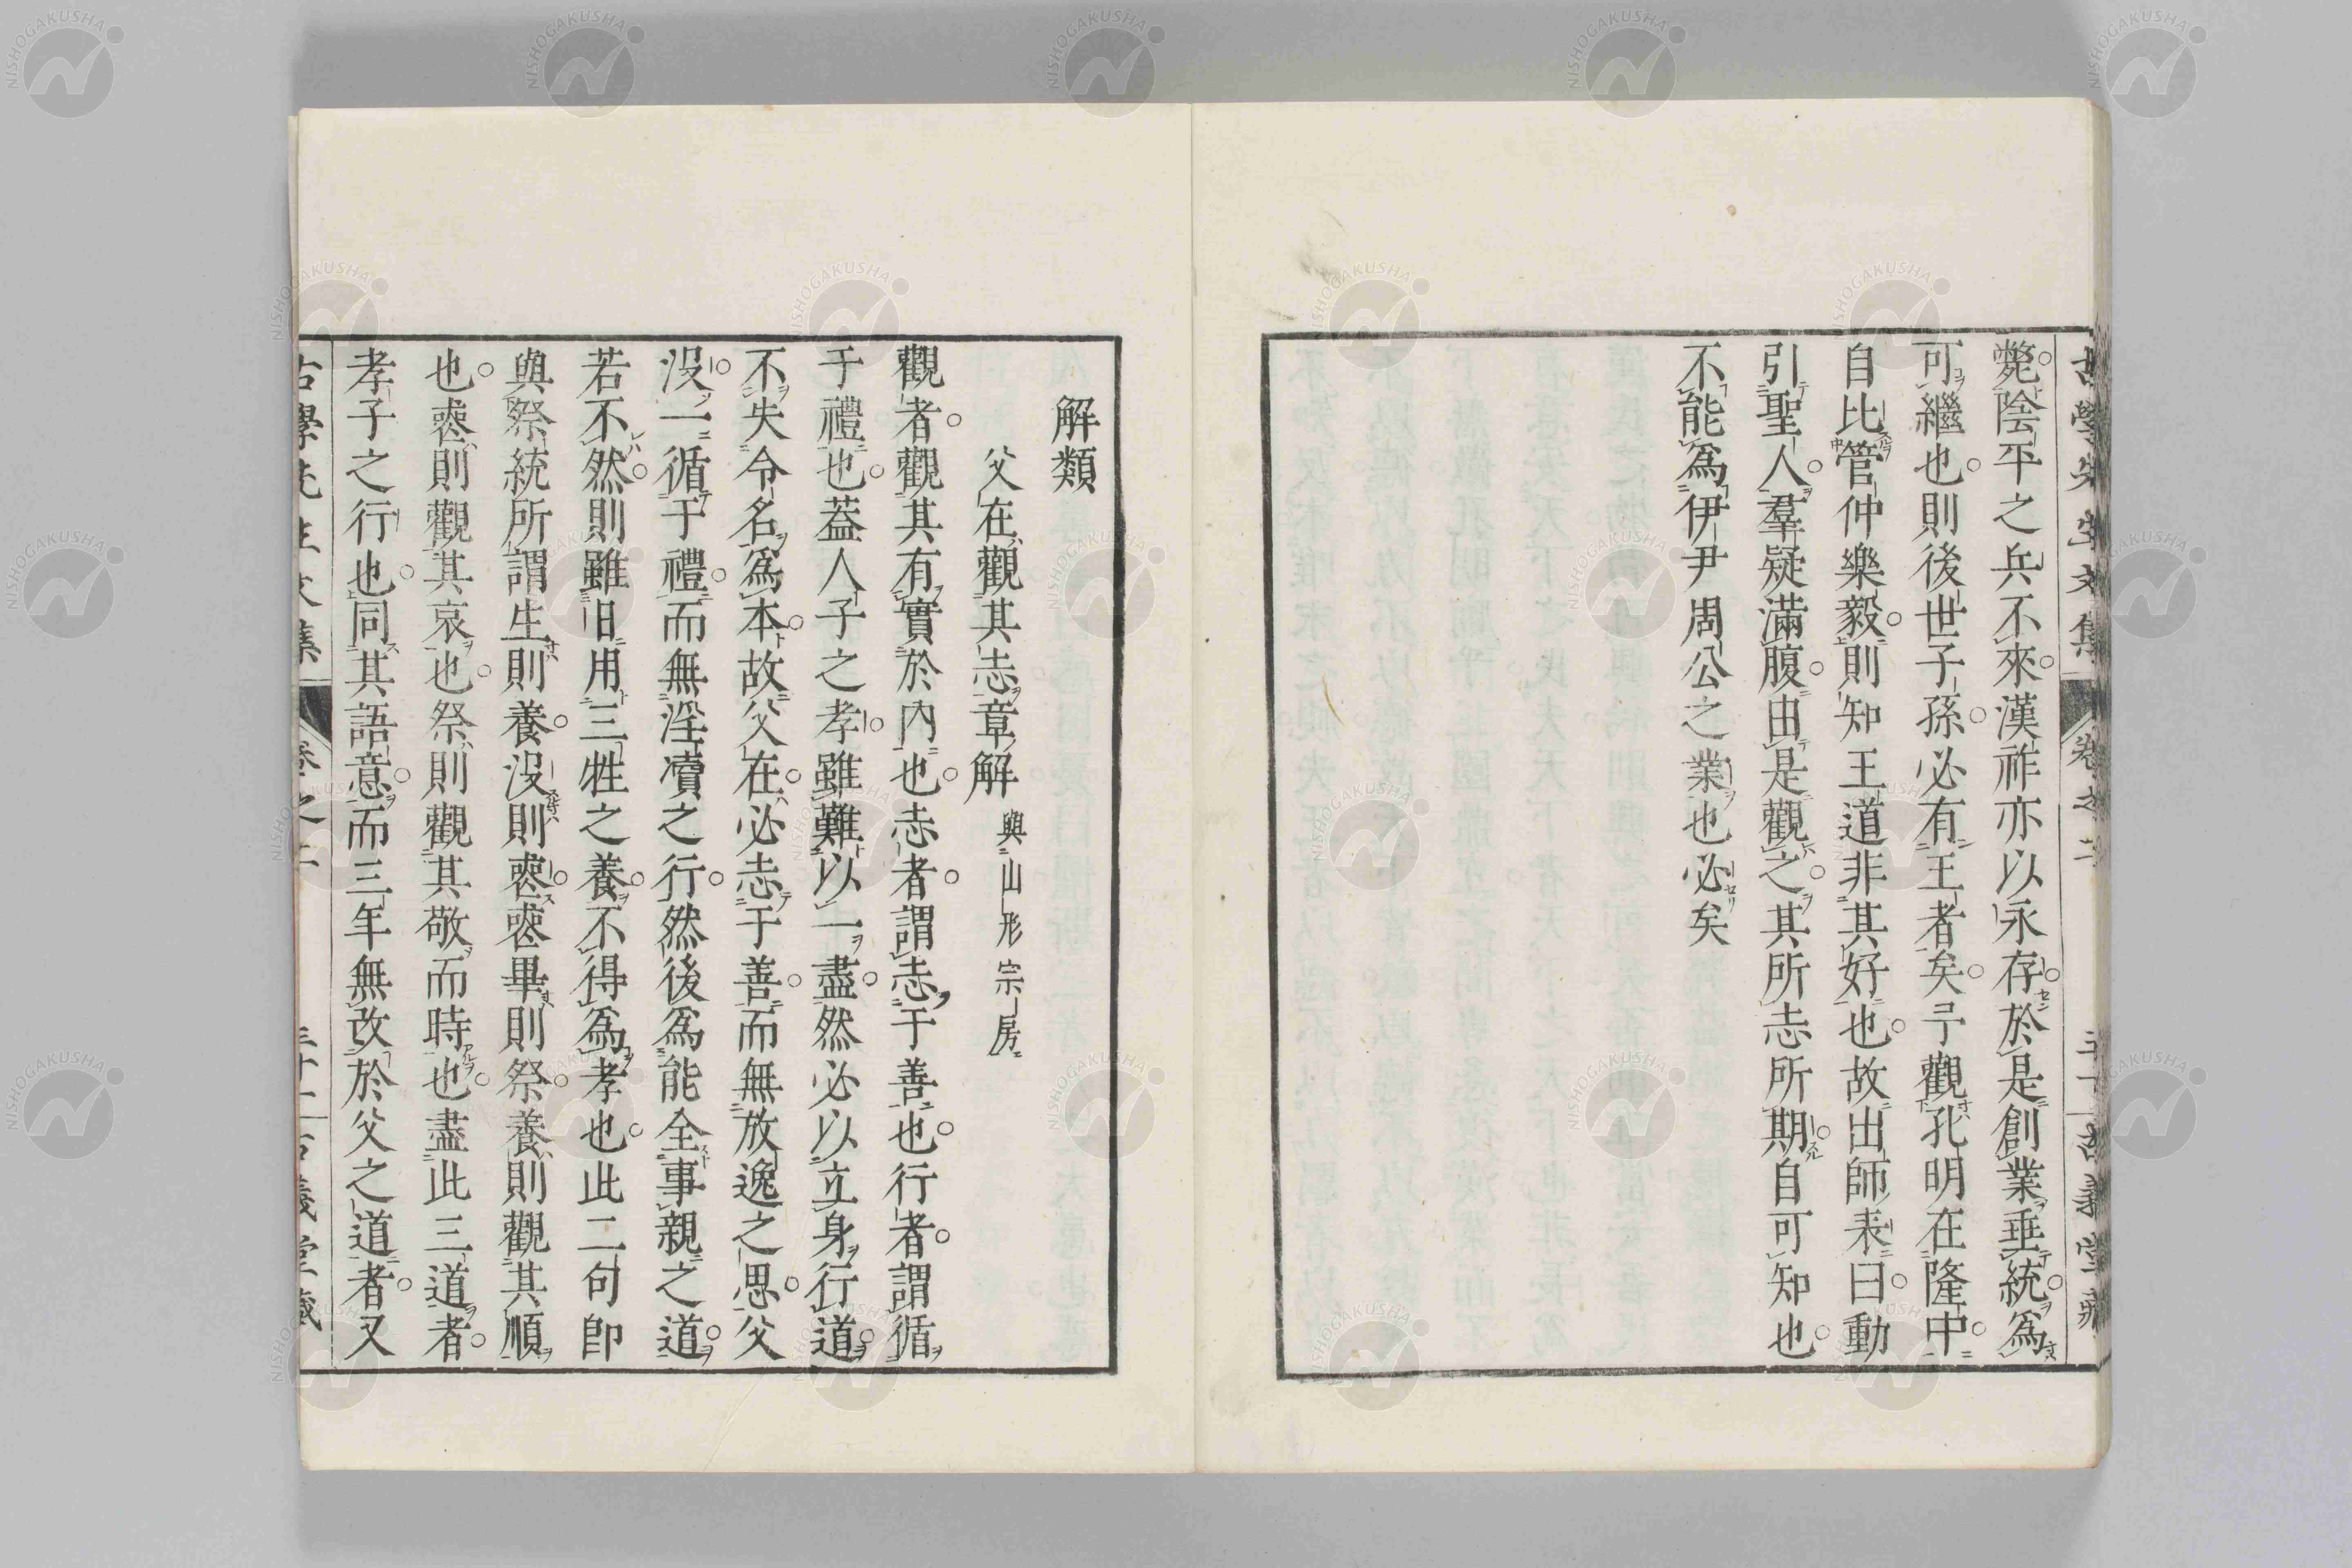 古學先生文集 卷之二 古義堂藏
斃。陰平之兵不來。漢祚亦以永存。於是創業垂統。爲
可繼也。則後世子孫。必有王者矣。予觀孔明在隆中。
自比管仲樂毅。則知王道非其好也。故出師表曰。動
引聖人。羣疑滿腹。由是觀之。其所志所期。自可知也。
不能爲伊尹周公之業也必矣
解類
父在觀其志章解 與山形宗房
觀者。觀其有實於內也。志者。謂志于善也。行者。謂循
于禮也。葢人子之孝。雖難以一盡。然必以立身行道。
不失令名爲本。故父在。必志于善。而無放逸之思。父
没。一循于禮。而無淫瀆之行。然後爲能全事親之道。
若不然。則雖旧用三牲之養。不得爲孝也。此二句卽
與祭統所謂生則養。没則喪。喪畢則祭。養則觀其順
也。喪則觀其哀也。祭則觀其敬而時也。盡此三道者。
孝子之行也。同其語意。而三年無改於父之道者。又
古學先生文集 卷之二 古義堂藏
NISHOGAKUSHA